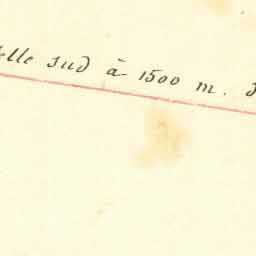 elle sud à 1500 m.